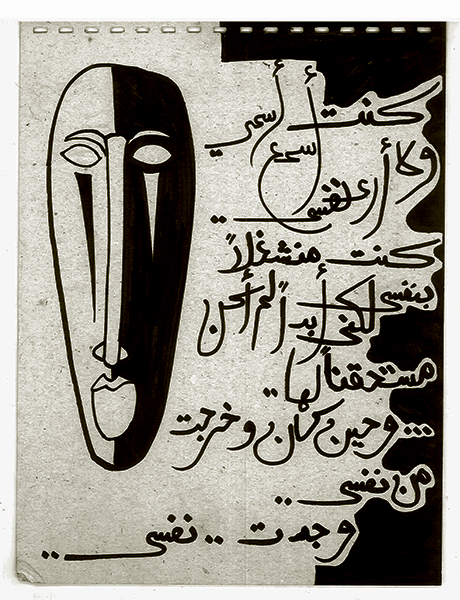 كنت أسمع أسمي
ولا أرى نفسي ..
كنت منشغلاً
بنفسي
لكني أبداً لم أكن
لها ..
... وحين كان وخرجت
من نفسي ..
وجدت .. نفسي ..